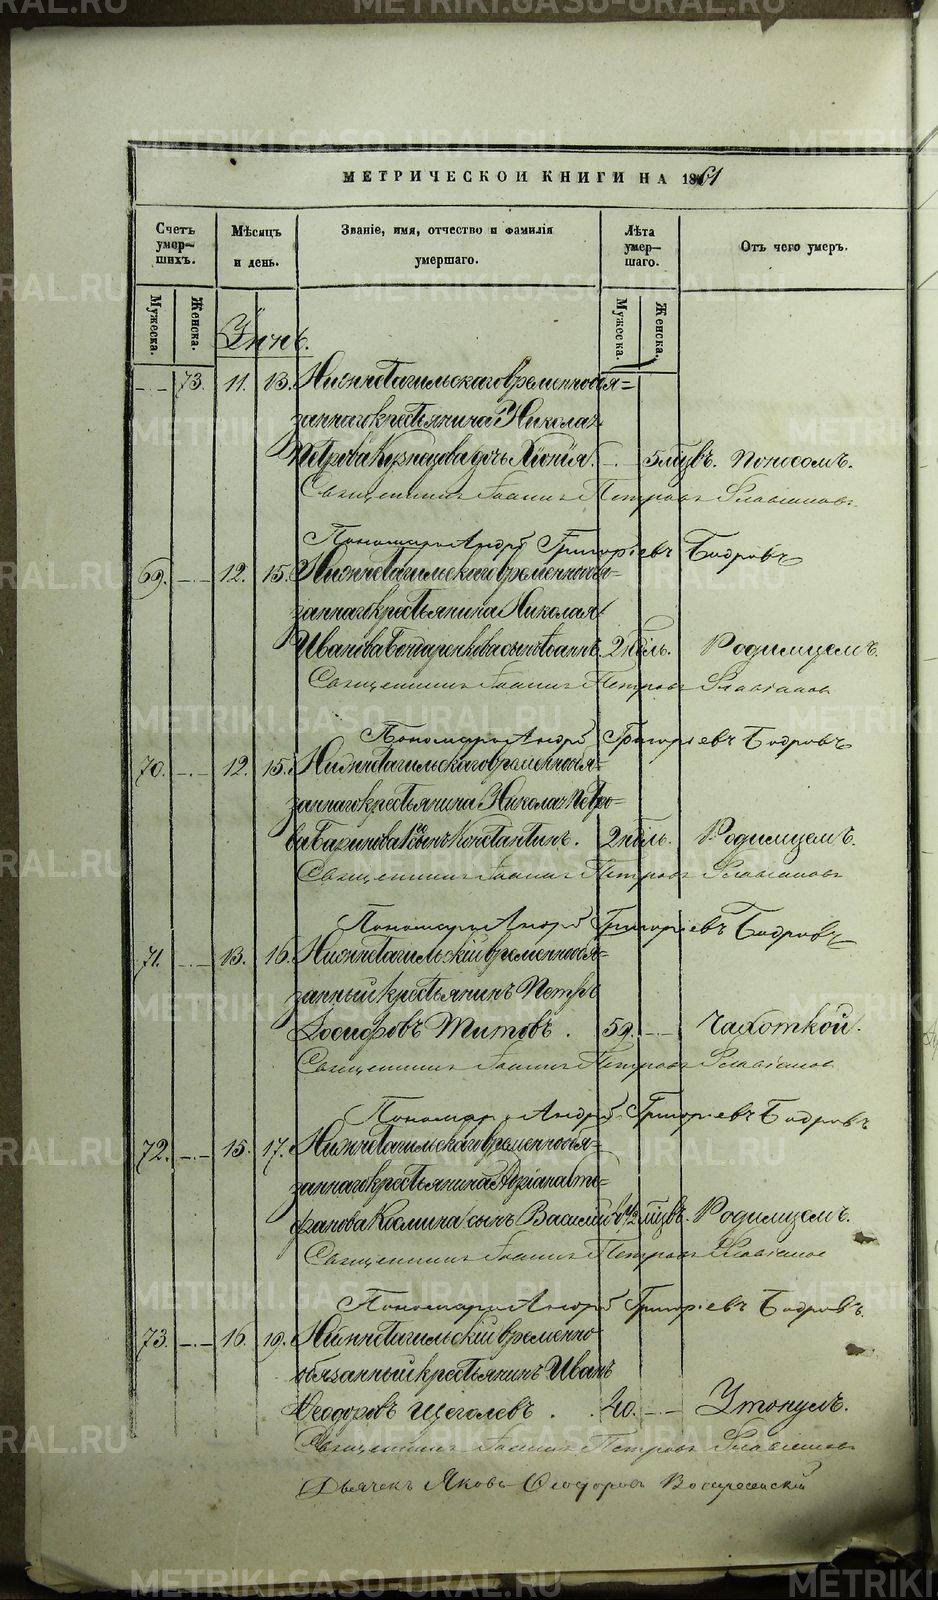 МЕТРИЧЕСКОЙ КНИГИ НА 1861
Счетъ умер-шихъ.
Мѣсяцъ и день.
Званіе, имя, отчество и фамилія умершаго.
Лѣта умер-шаго.
Отъ чего умеръ.
Мужеска. Женска. Мужеска. Женска.
Іюнь.
- - 73. 11. 13. Нижнетагильскаго временнообя=
заннаго крестьянина Николая
Петрова Кузнецова дочь Хіонія. - - 5 мцвъ. Поносомъ.
Священникъ Іоаннъ Петровъ Славнинъ
Пономарь Андрей Григорьевъ Бодровъ
69. - - 12. 15. Нижнетагильскаго временнообя=
заннаго крестьянина Николая
Иванова Бондаренкова сынъ Іоаннъ. 2 нѣль. Родимцемъ.
Священникъ Іоаннъ Петровъ
Пономарь Андрей Григорьевъ Бодровъ
70. - - 12. 15. Нижнетагильскаго временнообя=
заннаго крестьянина Николая Петро=
ва сынъ Константинъ. 2 нѣль. Родимцемъ.
Священникъ Іоаннъ Петровъ
Пономарь Андрей Григорьевъ Бодровъ
71. - - 13. 16. Нижнетагильскій временнообя=
занный крестьянинъ Петръ
Досифѣевъ Титовъ. 59. - - Чахоткой.
Священникъ Іоаннъ Петровъ
Пономарь Андрей Григорьевъ Бодровъ
72. - - 15. 17. Нижнетагильскаго временнообя=
заннаго крестьянина Адріана Сте=
фанова Космина сынъ Василій мцвъ. Родимцемъ.
Священникъ Іоаннъ Петровъ
Пономарь Андрей Григорьевъ Бодровъ
73. - - 16. 19. Нижнетагильскій временно=
обязанный крестьянинъ Иванъ
Ѳеодоровъ Щеголевъ. 40. - - Утонулъ.
Священникъ Іоаннъ Петровъ
Дьячекъ Яковъ Ѳеодоровъ Воскресенскій
METRIKI.GASO-URAL.RU